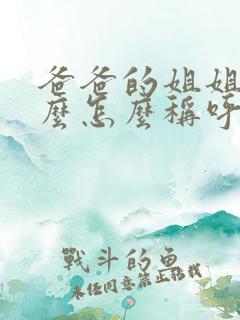 爸爸的姐姐
麼怎麼稱呼
戰斗的鱼
未经同意禁止转载